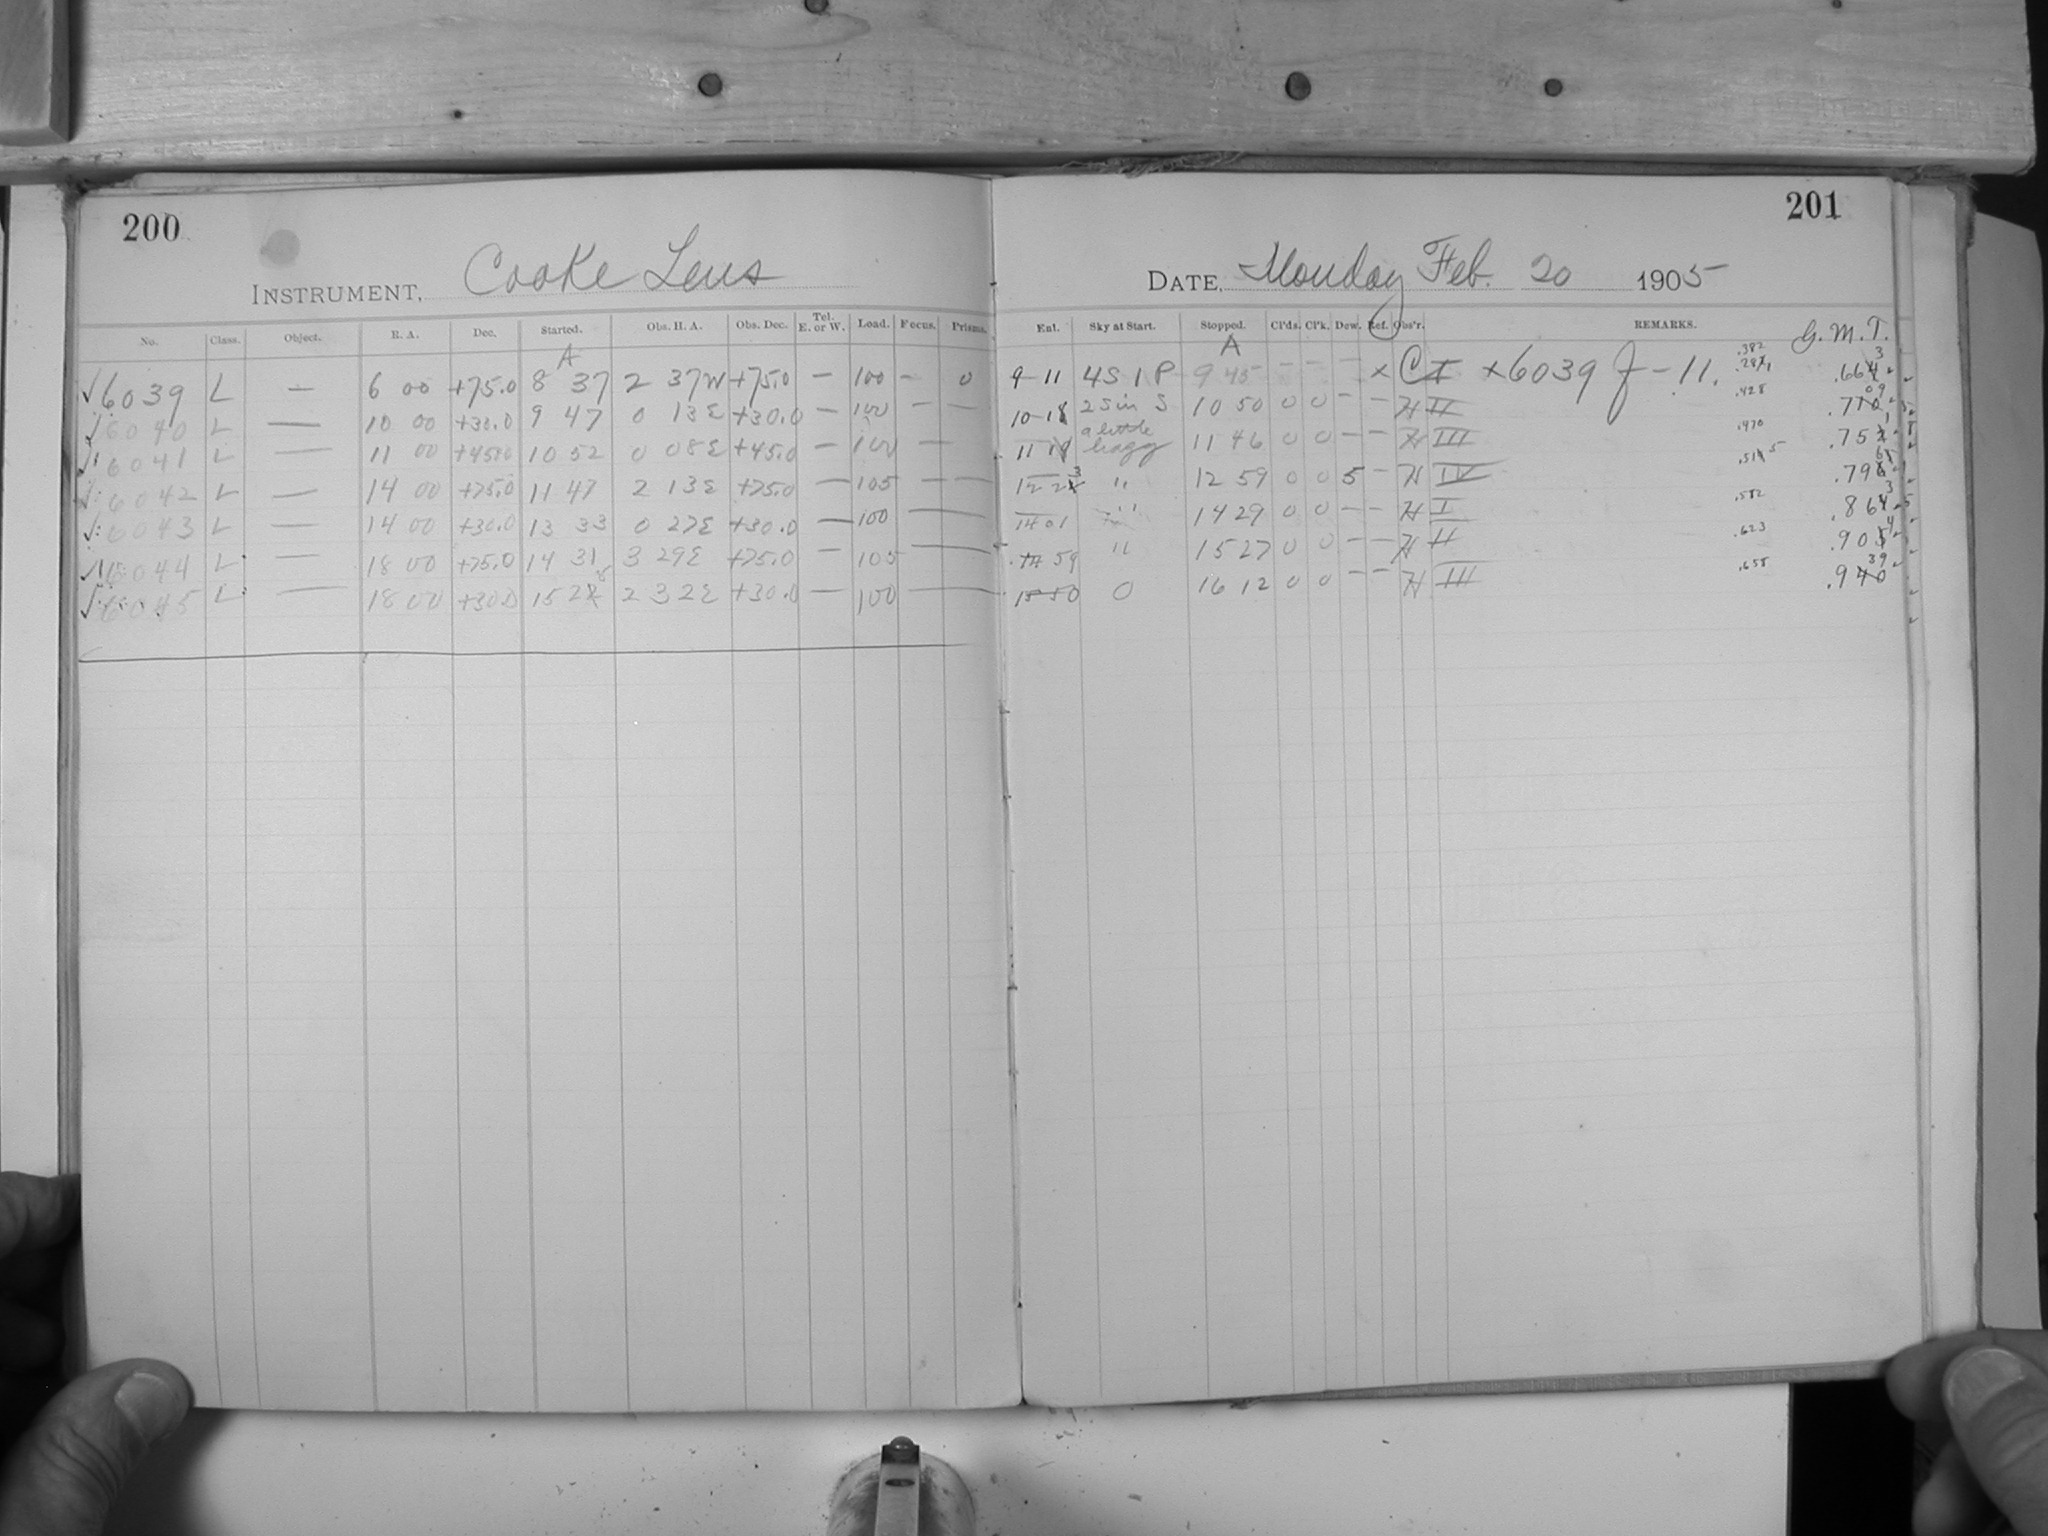 200
201
INSTRUMENT, Cooke Lens
DATE, Monday Feb. 20 1905
No. Class. Object. R. A. Dec. Started. Obs. H. A. Obs. Dec. Tel. E. or W. Load. Focus. Prisms. Ent. Sky at Start. Stopped. Cl'ds. Cl'k. Dew. Ref. Obs'r. REMARKS. G. M. T.
A A
√6039 L — 6 00 +75.0 8 37 2 37W +75.0 — 100 — 0 9-11 4S 1P 9 45 — — — × C I ×6039 J-11. .382
6040 L — 10 00 +30.0 9 47 0 13E +30.0 — 100 — — 10-18 2S in S 10 50 0 0 — — H II .428
6041 L — 11 00 +45.0 10 52 0 08E +45.0 — 100 — — 11 19 a little hazy 11 46 0 0 — — H III .470
6042 L — 14 00 +75.0 11 47 2 13E +75.0 — 105 — — 12 23 " 12 59 0 0 5 — H IV
6043 L — 14 00 +30.0 13 33 0 27E +30.0 — 100 — — 14 01 " 14 29 0 0 — — H I .582
6044 L — 18 00 +75.0 14 31 3 29E +75.0 — 105 — — 14 59 " 15 27 0 0 — — H II .623
6045 L — 18 00 +30.0 15 28 2 32E +30.0 — 100 — — 15 50 0 16 12 0 0 — — H III .658